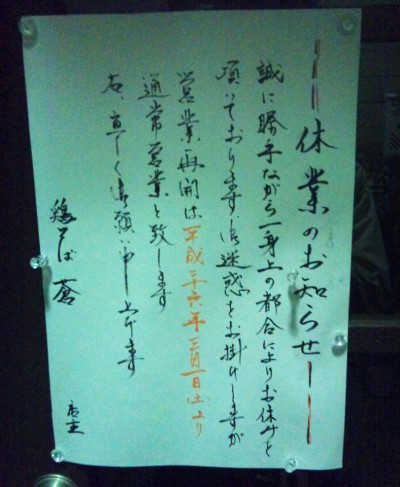 休業のお知らせ
誠に勝手ながら一身上の都合によりお休みと
頂いております。御迷惑をお掛けしますが
営業再開は平成二十六年三月一日(土)より
通常営業と致します
右、宜しく御願い申し上げます
鶏そば 蒼
店主